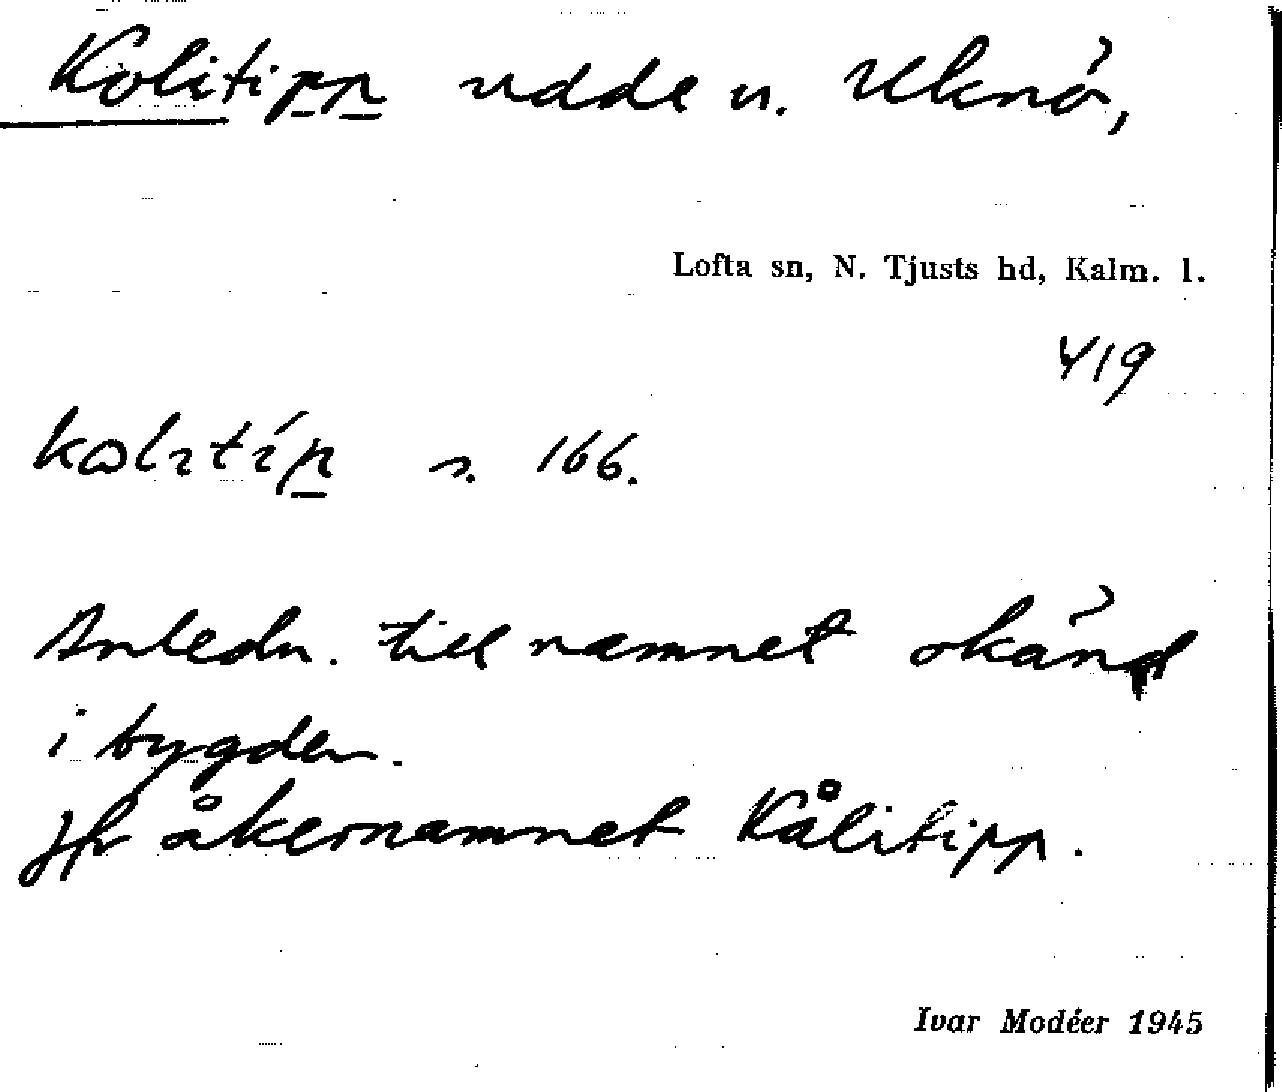 Kolitipp udde u. Uknö,
Lofta sn, N. Tjusts hd, Kalm. l.
419
s. 166.
Anledn. till namnet okänd
i bygden.
Jfr åkernamnet Kålitipp.
Ivar Modéer 1945